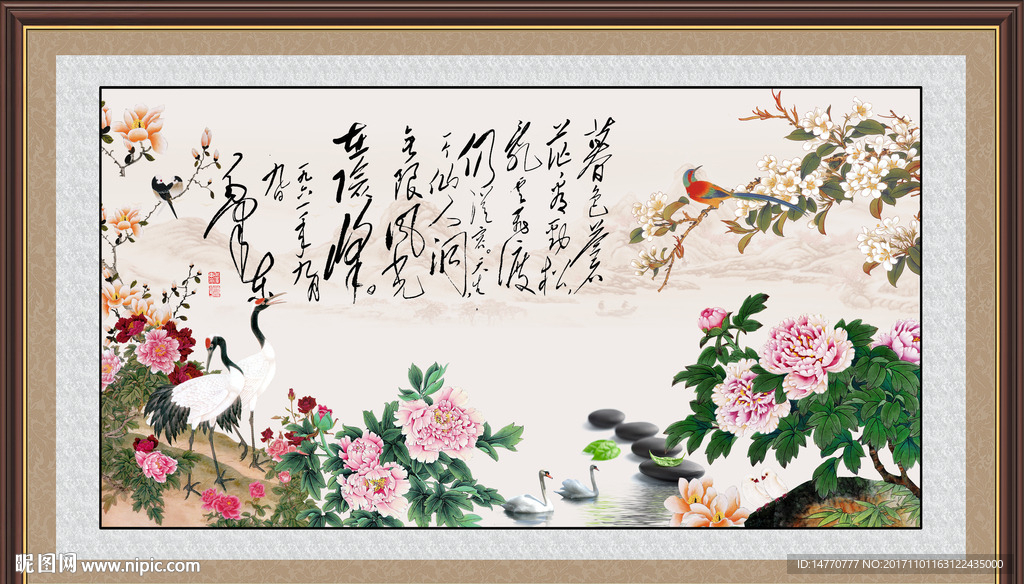 暮色苍茫看劲松,
乱云飞渡
仍从容。天生
一个仙人洞,
无限风光
在险峰。
一九六一年九月
九日
毛泽东
昵图网 www.nipic.com
ID:14770777 NO:20171101163122435000